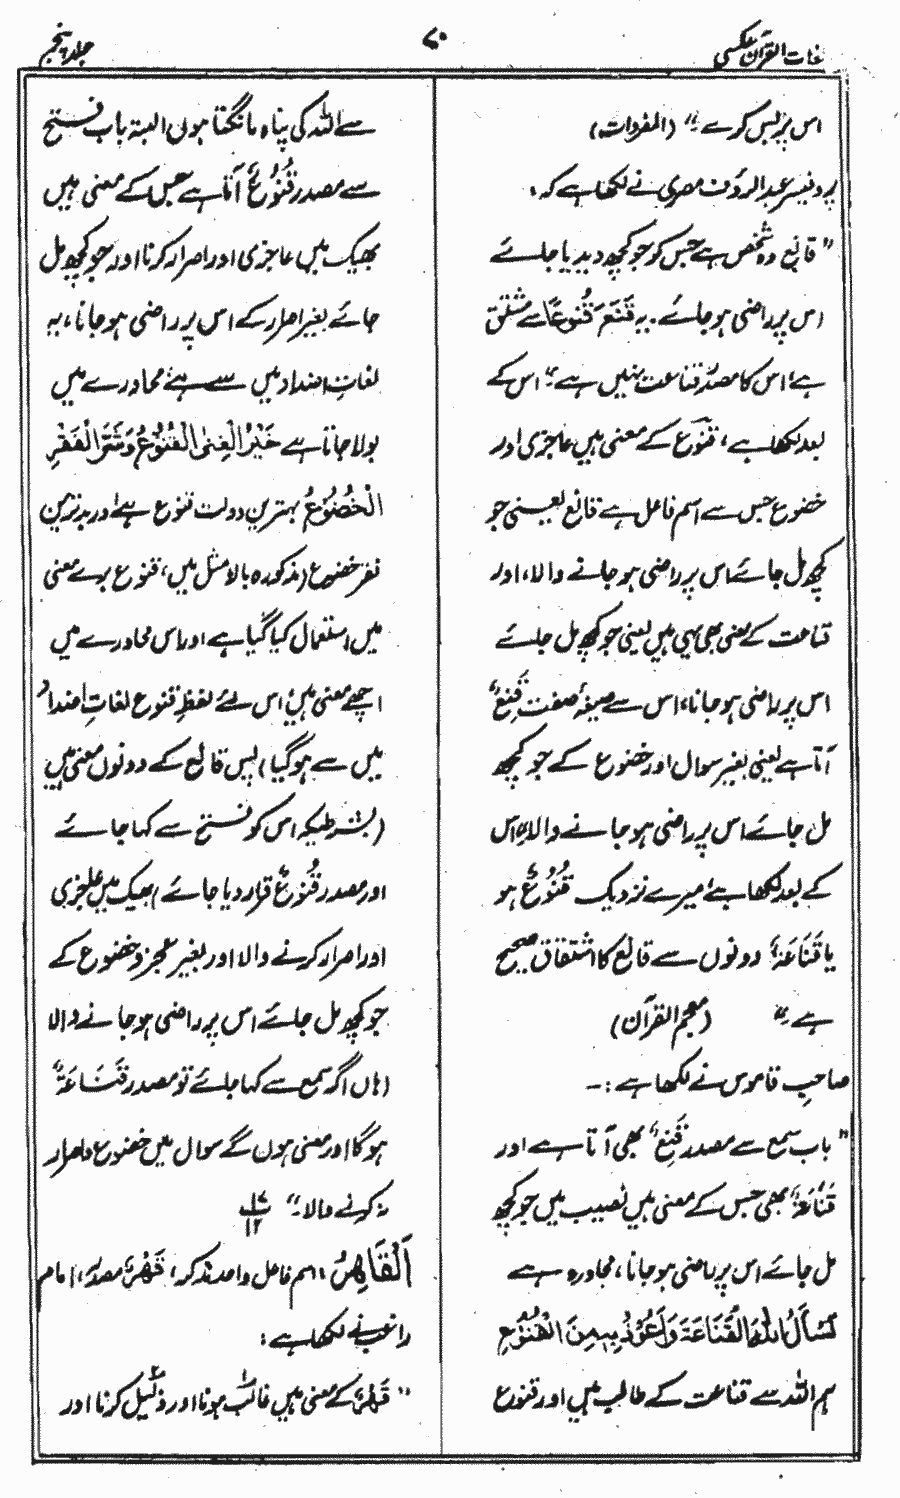 لغات القرآن عکسی
۷۰
جلد پنجم
اس پر بس کرے" (المفردات)
پروفیسر عبدالرؤف مصری نے لکھا ہے کہ:
"قانع وہ شخص ہے جس کو جو کچھ دیدیا جائے
اس پر راضی ہو جائے۔ یہ قَنَعَ قُنُوعًا سے مشتق
ہے، اس کا مصدر قناعت نہیں ہے" اس کے
بعد لکھا ہے، قنوع کے معنی ہیں عاجزی اور
خضوع جس سے اسم فاعل ہے قانع یعنی جو
کچھ مل جائے اس پر راضی ہو جانے والا، اور
قناعت کے معنی بھی یہی ہیں یعنی جو کچھ مل جائے
اس پر راضی ہو جانا، اس سے صیغہ صفت قَنِعٌ
آتا ہے یعنی بغیر سوال اور خضوع کے جو کچھ
مل جائے اس پر راضی ہو جانے والا" اس
کے بعد لکھا ہے، میرے نزدیک قُنُوعٌ ہو
یا قَنَاعَةٌ دونوں سے قانع کا اشتقاق صحیح
ہے" (معجم القرآن)
صاحب قاموس نے لکھا ہے :-
"باب سمع سے مصدر قَنَعٌ بھی آتا ہے اور
قَنَاعَةٌ بھی جس کے معنی ہیں نصیب میں جو کچھ
مل جائے اس پر راضی ہو جانا، محاورہ ہے
نَسْأَلُ اللهَ الْقَنَاعَةَ وَنَعُوْذُ بِهٖ مِنَ الْقُنُوْعِ
ہم اللہ سے قناعت کے طالب ہیں اور قنوع
سے اللہ کی پناہ مانگتا ہوں البتہ باب فتح
سے مصدر قُنُوْعٌ آتا ہے جس کے معنی ہیں
بھیک میں عاجزی اور اصرار کرنا اور جو کچھ مل
جائے بغیر اصرار کے اس پر راضی ہو جانا، یہ
لغاتِ اضداد میں سے ہے محاورے میں
بولا جاتا ہے خَيْرُ الْغِنٰی الْقُنُوْعُ وَشَرُّ الْفَقْرِ
الْخُضُوْعُ بہترین دولت قنوع ہے اور بدترین
فقر خضوع (مذکورہ بالا مثل میں، قنوع برے معنی
میں استعمال کیا گیا ہے اور اس محاورے میں
اچھے معنی ہیں، اس لئے لفظِ قنوع لغاتِ اضداد
میں سے ہو گیا) پس قانع کے دونوں معنی ہیں
(بشرطیکہ اس کو فتح سے کہا جائے
اور مصدر قُنُوْعٌ قرار دیا جائے) بھیک میں عاجزی
اور اصرار کرنے والا اور بغیر عجز و خضوع کے
جو کچھ مل جائے اس پر راضی ہو جانے والا
(ہاں اگر سمع سے کہا جائے تو مصدر قَنَاعَةٌ
ہوگا اور معنی ہوں گے سوال میں خضوع و اصرار
نہ کرنے والا۔" ۱۷/۱۲
اَلْقَاهِرُ، اسم فاعل واحد مذکر، قَهْرٌ مصدر، امام
راغب نے لکھا ہے:
"قَهْرٌ کے معنی ہیں غالب ہونا اور ذلیل کرنا اور